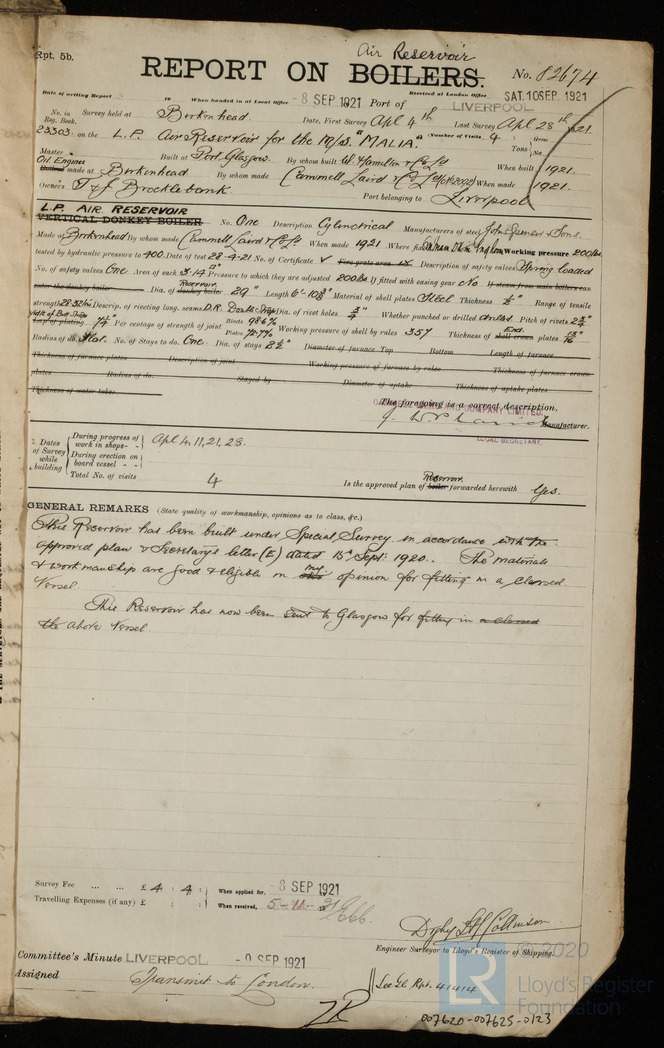 Rpt. 5b.
Air Reservoir
REPORT ON BOILERS.
No. 82674
Date of writing Report 19 When handed in at Local Office - 8 SEP 1921 Port of LIVERPOOL
Received at London Office SAT. 10 SEP. 1921
No. in Reg. Book. Survey held at Birkenhead Date, First Survey Apl 4th Last Survey Apl 28th 1921.
23303 on the L.P. Air Reservoir for the M/s. "MALIA" (Number of Visits 4) Gross Tons Net
Master Built at Port Glasgow. By whom built W. Hamilton & Co Ld When built 1921.
Oil Engines Boiler made at Birkenhead By whom made Cammell Laird & Co Ld When made 1921.
Owners T & J Brocklebank Port belonging to Liverpool
L.P. AIR RESERVOIR
VERTICAL DONKEY BOILER No. One Description Cylindrical Manufacturers of steel John Spencer & Sons.
Made at Birkenhead By whom made Cammell Laird & Co Ld When made 1921 Where fixed Working pressure 200 lbs
tested by hydraulic pressure to 400 Date of test 28-4-21 No. of Certificate Fire grate area Description of safety valves Spring loaded
No. of safety valves One Area of each 3.14 Pressure to which they are adjusted 200 lbs If fitted with easing gear No If steam from main boilers can
enter the donkey boiler Dia. of Reservoir donkey boiler 29" Length Material of shell plates Steel Thickness Range of tensile
strength 28.32 tons Descrip. of riveting long. seams D.R. Double Straps Dia. of rivet holes 3/4" Whether punched or drilled drilled Pitch of rivets 2 3/4"
Width of Butt Straps Lap of plating 7 1/4" Per centage of strength of joint Rivets 98.6% Plates 72.7% Working pressure of shell by rules 357 Thickness of End shell crown plates 13/16"
Radius of do. Flat. No. of Stays to do. One. Dia. of stays 2 1/2" Diameter of furnace Top Bottom Length of furnace
Thickness of furnace plates Description of joint Working pressure of furnace by rules Thickness of furnace crown
plates Radius of do. Stayed by Diameter of uptake Thickness of uptake plates
Thickness of water tubes
The foregoing is a correct description,
CAMMELL LAIRD AND COMPANY LIMITED.
Manufacturer.
LOCAL SECRETARY.
Dates of Survey while building
During progress of work in shops - - Apl 4, 11, 21, 28.
During erection on board vessel - -
Total No. of visits 4
Is the approved plan of Reservoir boiler forwarded herewith Yes.
GENERAL REMARKS (State quality of workmanship, opinions as to class, &c.)
This Reservoir has been built under Special Survey in accordance with the
approved plan & Secretary's letter (E) dated 15th Sept: 1920. The materials
& workmanship are good & eligible in my opinion for fitting in a classed
Vessel.
This Reservoir has now been sent to Glasgow for fitting in a classed
the above Vessel.
Survey Fee ... ... £ 4 : 4 : When applied for, - 8 SEP 1921
Travelling Expenses (if any) £ : : When received,
Engineer Surveyor to Lloyd's Register of Shipping.
Committee's Minute LIVERPOOL - 9 SEP 1921
Assigned Transmit to London.
See Gls Rpt. 41414
© 2020
LR
Lloyd's Register
Foundation
007620-007625-0123